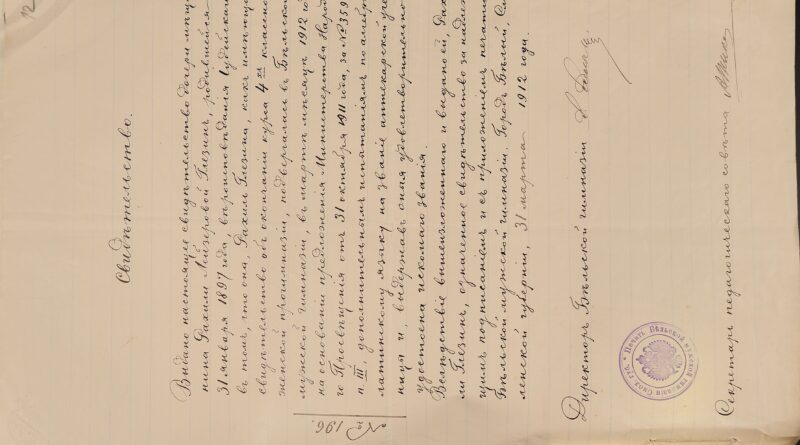 12
Свидѣтельство.
Выдано настоящее свидѣтельство дочери мѣща
нина Рахили Мейеровой Глезинъ, родившейся
31 января 1897 года, вѣроисповѣданія Іудейскаго
въ томъ, что она, Рахиль Глезина, какъ имѣюща
свидѣтельство объ окончаніи курса 4хъ классно
женской прогимназіи, подвергалась въ Бѣльской
мужской гимназіи, въ мартѣ мѣсяцѣ 1912 го
на основаніи предложенія Министерства Народ
го Просвѣщенія отъ 31 октября 1911 года, за № 359
п. III дополнительнымъ испытаніямъ по алгебр
латинскому языку на званіе аптекарской уче
ницы и, выдержавъ оныя удовлетворительно
удостоена искомаго званія.
Вслѣдствіе вышеизложеннаго и выдано ей, Рах
ли Глезинъ, означенное свидѣтельство за надлеж
щимъ подписаніемъ и съ приложеніемъ печати
Бѣльской мужской гимназіи. Городъ Бѣлый, См
ленской губерніи, 31 марта 1912 года.
Директоръ Бѣльской гимназіи
Секретарь педагогическаго совѣта
№ 196.
Печать Бѣльской мужской гимназіи Смол. губ.